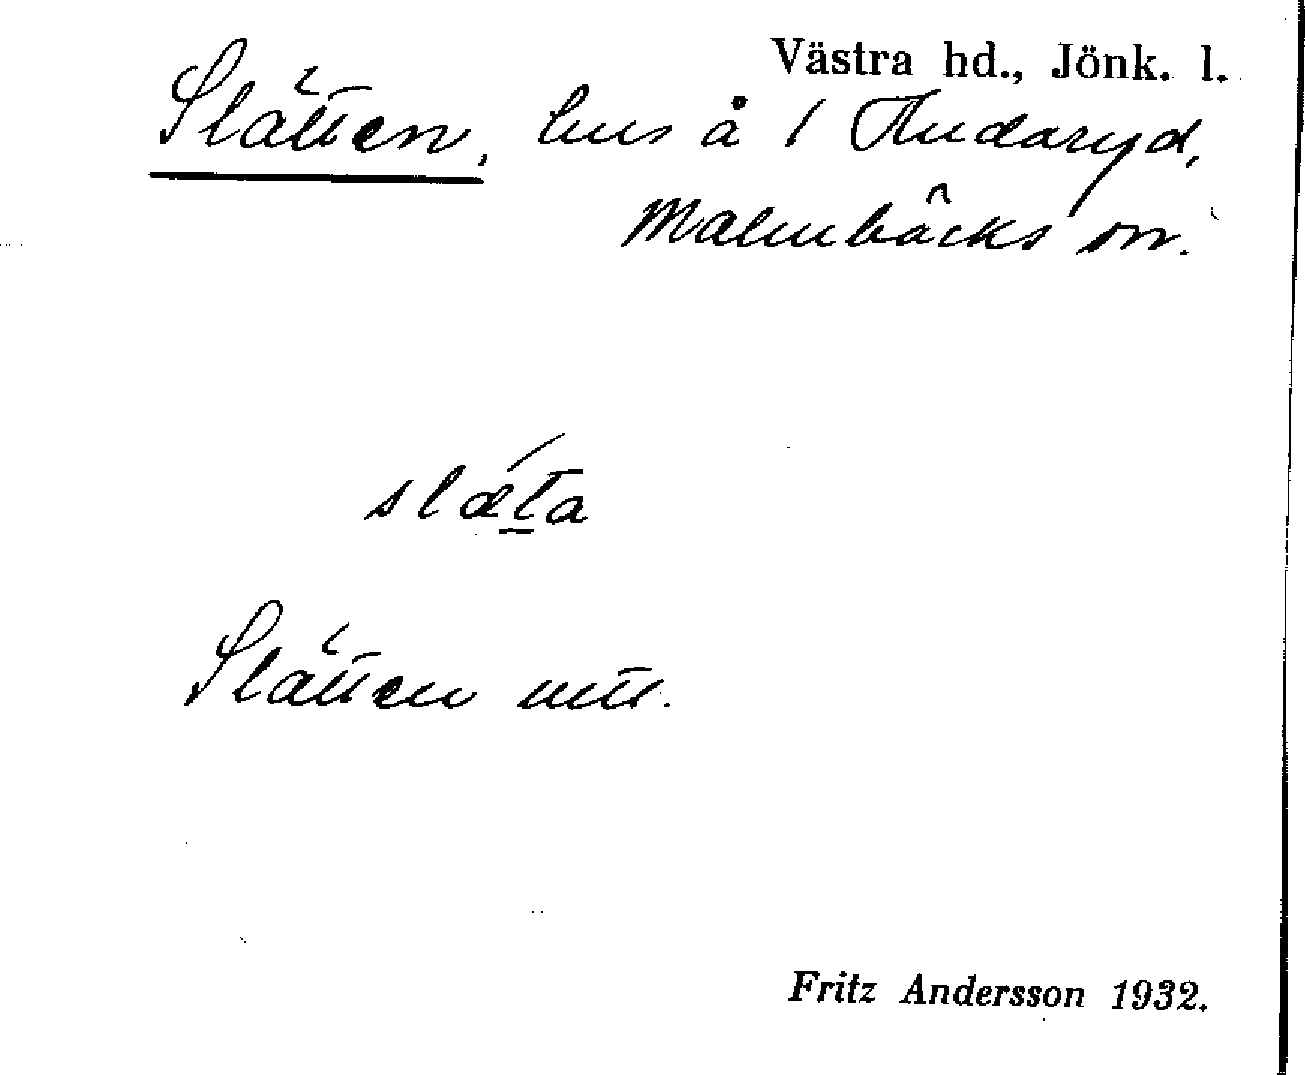 Västra hd., Jönk. l.
Slätten, hus å 1
Malmbäcks sn.
slǽt̲a
Slätten
Fritz Andersson 1932.